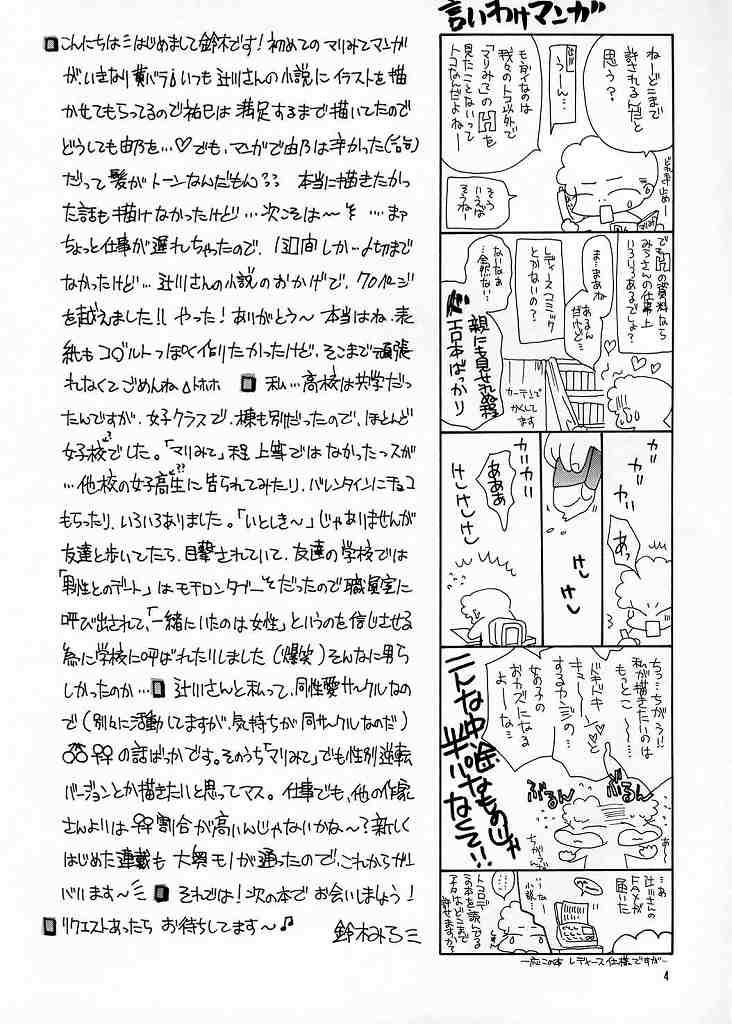 言いわけマンガ
ねーどこまで
許されるんだと
思う?
うーん…
モンダイなのは
我々のトコ以外で
「マリみて」の凶を
見たことないって
トコなんだよねー
そう
いえば
そうねー
でも凶の資料なら
みろさんの仕事上
いろいろあるでしょ?
ま…まあね
あるん
だけど…
レディースコミック
とかないの?
ないなあ
…全然ない…
親にも見せれぬ程
エロ本ばかり
カーテンで
かくして
ます
ガッガッ
ガッ
あっ
けし
けし
あああ
けしけしけし
ちっ…ちがう!!
私が描きたいのは
もっとこ〜…
ドキドキ
キューーンと
するカンジの
女の子の
おカズになる
よーな…
ぶるん
ぶるん
こんな中途
半パなものじゃ
なくて!!
辻川さんの
FAXが
届いた
…ない
小説…
トコロで
この本を読んでる
アナタはどこまで
許せますか?
一応この本 レディース仕様ですが…
4
こんにちは はじめまして鈴木です!初めてのマリみてマンガ
が、いきなり黄バラ!いつも辻川さんの小説にイラストを描
かせてもらってるので祐巳は満足するまで描いてたので
どうしても由乃を…♡でも、マンガで由乃は辛かった(苦笑)
だって髪がトーンなんだもん?? 本当に描きたかっ
た話も描けなかったけど…次こそは〜 …まァ
ちょっと仕事が遅れちゃったので、1週間しか〆切まで
なかったけど…辻川さんの小説のおかげで、70ページ
を越えました!!やった!ありがとう〜本当はね、表
紙もコバルトっぽく作りたかったけど、そこまで頑張
れなくてごめんね トホホ 私…高校は共学だっ
たんですが、女子クラスで、棟も別だったので、ほとんど
女子校でした。「マリみて」程上等ではなかったっスが
…他校の女子高生に告られてみたり、バレンタインにチョコ
もらったり、いろいろありました。「いとしき〜」じゃありませんが
友達と歩いてたら、目撃されていて、友達の学校では
「男性とのデート」はモチロンタブーだったので職員室に
呼び出されて、「一緒にいたのは女性」というのを信じさせる
為に学校に呼ばれたりしました(爆笑)そんなに男ら
しかったのか… 辻川さんと私って、同性愛サークルなの
で(別々に活動してますが、気持ちが同サークルなのだ)
♂♂♀♀の話ばっかです。そのうち「マリみて」でも性別逆転
バージョンとか描きたいと思ってマス。仕事でも、他の作家
さんよりは♀♀割合が高いんじゃないかな〜?新しく
はじめた連載も大奥モノが通ったので、これからガン
バります〜 それでは!次の本でお会いしましょう!
リクエストあったら お待ちしてます〜♪
鈴木みろ